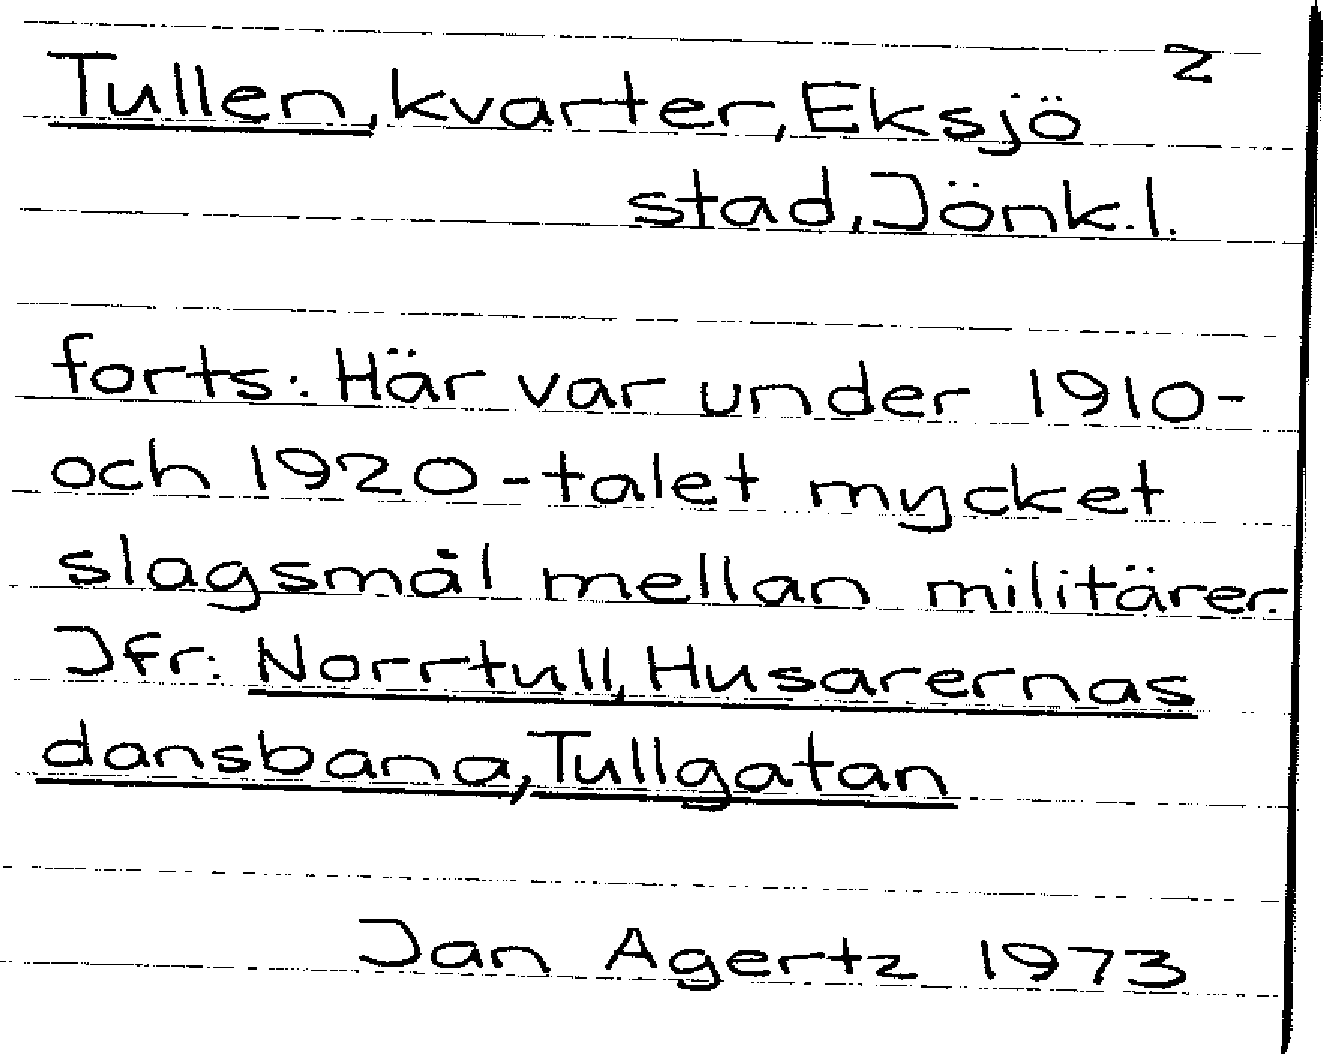 2
Tullen, kvarter, Eksjö
stad, Jönk.l.
forts.: Här var under 1910-
och 1920-talet mycket
slagsmål mellan militärer.
Jfr: Norrtull, Husarernas
dansbana, Tullgatan
Jan Agertz 1973